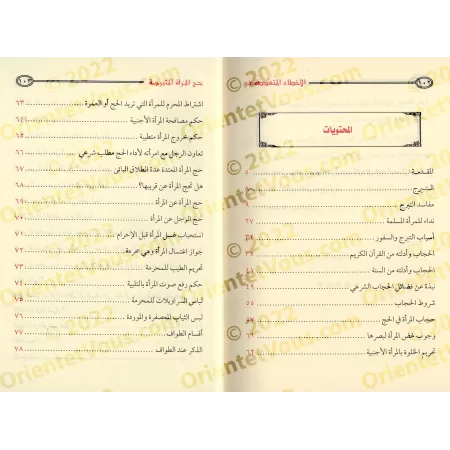 الأخطاء المتعددة في
١٠٢
المحتويات
المقدمة ٥
التبرج
مفاسد التبرج
نداء للمرأة المسلمة ٢٧
أسباب التبرج والسفور
الحجاب وأدلته من القرآن الكريم ٣٥
الحجاب وأدلته من السنة ٤
نبذة عن فضائل الحجاب الشرعي
شروط الحجاب ٥٥
حجاب المرأة في الحج
وجوب غض المرأة لبصرها
تحريم الخلوة بالمرأة الأجنبية ٦٢
حج المرأة المتبرجة
١٠٣
اشتراط المحرم للمرأة التي تريد الحج أو العمرة ٦٣
حكم مصافحة المرأة الأجنبية ٦٤
حكم خروج المرأة متطيبة ٦٥
تعاون الرجل مع امرأته لأداء الحج مطلب شرعي ٦٦
حج المرأة المعتدة عدة الطلاق البائن ٦٧
هل تحج المرأة عن قريبها؟ ٦٨
حج المرأة عن المرأة ٦٩
حج الرجل عن المرأة ٧٠
استحباب غسل المرأة قبل الإحرام ٧١
جواز اغتسال المرأة وهي محرمة ٧٢
تحريم الطيب للمحرمة ٧٣
حكم رفع صوت المرأة بالتلبية ٧٤
لباس السراويلات للمحرمة ٧٥
لبس الثياب المعصفرة والموردة ٧٦
أقسام الطواف ٧٧
الذكر عند الطواف ٧٨
© 2022
OrientetVous.com